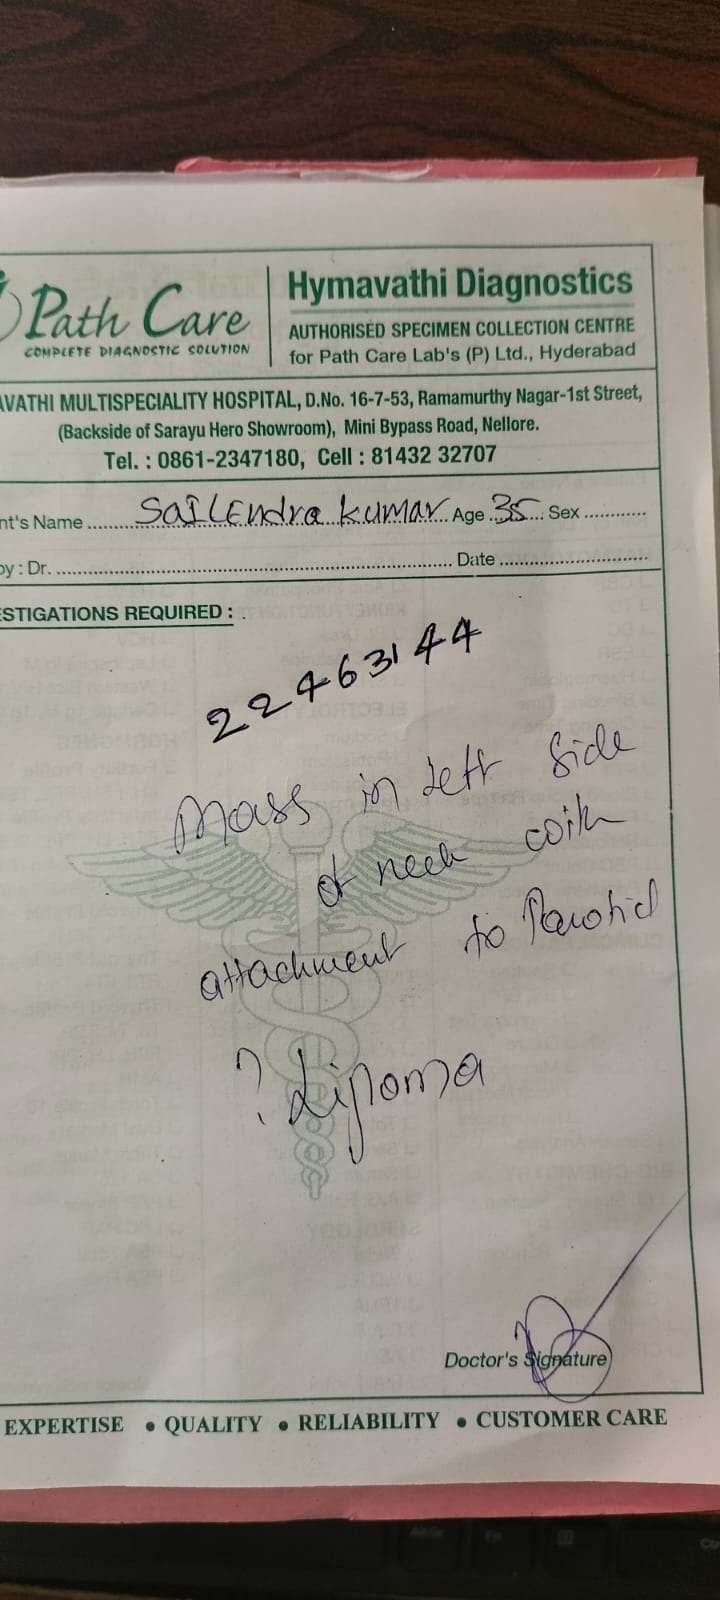 Path Care
COMPLETE DIAGNOSTIC SOLUTION
Hymavathi Diagnostics
AUTHORISED SPECIMEN COLLECTION CENTRE
for Path Care Lab's (P) Ltd., Hyderabad
AVATHI MULTISPECIALITY HOSPITAL, D.No. 16-7-53, Ramamurthy Nagar-1st Street,
(Backside of Sarayu Hero Showroom), Mini Bypass Road, Nellore.
Tel. : 0861-2347180, Cell : 81432 32707
nt's Name SaILEndra kumar Age 35 Sex
by : Dr. Date
ESTIGATIONS REQUIRED :
22463144
Mass in Left Side
of neck with
attachment to Parotid
? Lipoma
Doctor's Signature
EXPERTISE • QUALITY • RELIABILITY • CUSTOMER CARE